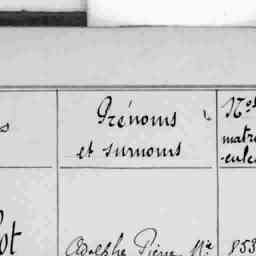 Prénoms
et surnoms
Nos
matri
-cules
Adolphe Pierre Mie
853